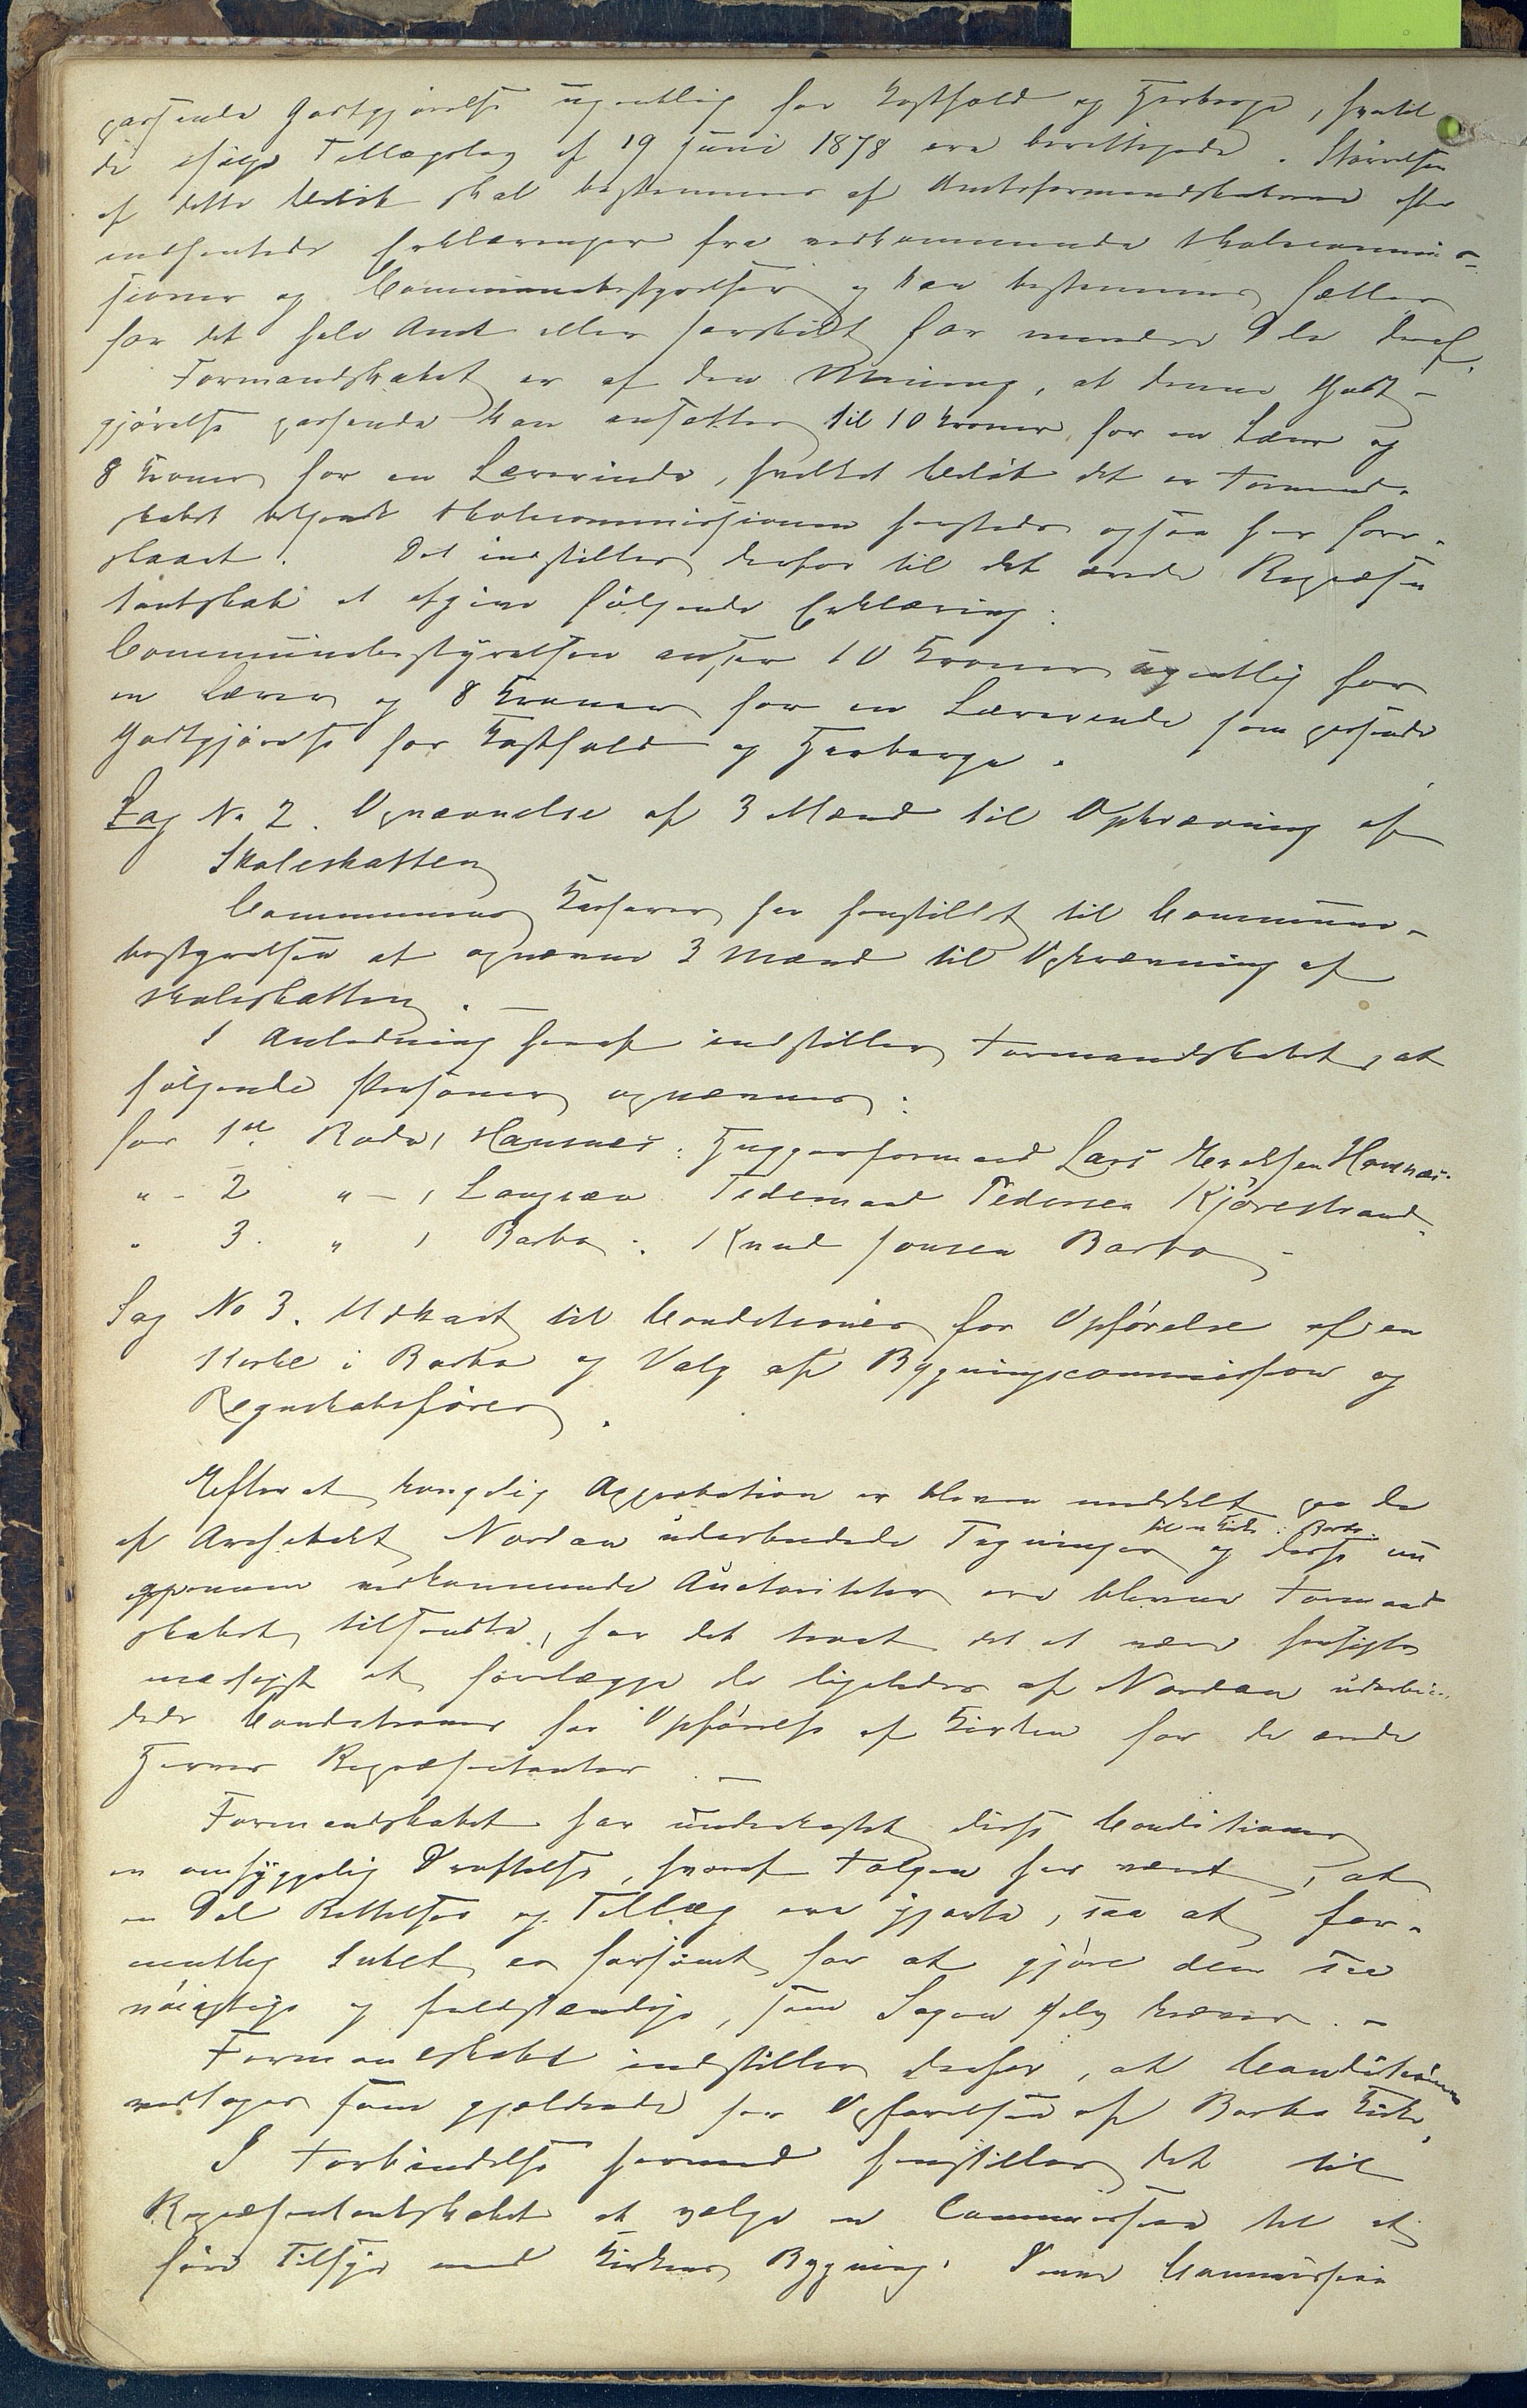 passende Godtgjørelse ugentlig for Kosthold og Herberge, hvortil
de ifølge Tillægslov af 19 Juni 1878 ere berettigede. Størrelsen
af dette Beløb skal bestemmes af Amtsformandskaberne efter
indhentede Erklæringer fra vedkommende Skolecommis-
sioner og Communebestyrelser og kan bestemmes fælles
for det hele Amt eller særskilt for mindre Dele deraf.
Formandskabet er af den Mening, at denne Godt-
gjørelse passende kan ansættes til 10 Kroner for en Lærer og
8 Kroner for en Lærerinde, hvilket Beløb det er Formand-
skabet bekjendt Skolecommissionen hersteds ogsaa har fore-
slaaet. Det indstilles derfor til det ærede Repræsen
tantskab at afgive følgende Erklæring:
Communebestyrelsen anser 10 Kroner ugentlig for
en Lærer og 8 Kroner for en Lærerinde som passende
Godtgjørelse for Kosthold og Herberge.
Sag No 2. Opnævnelse af 3 Mænd til Opkrævning af
Skoleskatten
Communens Kasserer har henstillet til Commune-
bestyrelsen at opnævne 3 Mænd til Opkrævning af
Skoleskatten. —
I Anledning heraf indstiller Formandskabet, at
følgende Personer opnævnes:
for 1ste Rode, Havnæs: Huggerformand Lars Havnæs.
" - 2 " - , Langsæv Tidemand Pedersen Kjørestrand
" 3. " , Barbo: Knud Jonsen Barbo -
Sag No 3. Udkast til Conditioner for Opførelse af en
Kirke i Barbo og Valg af Bygningscommission og
Regnskabsfører.
Efterat kongelig Approbation er bleven meddelt paa de
af Architekt Nordan udarbeidede Tegninger til en Kirke i Barbo og disse nu
gjennem vedkommende Autoriteter ere blevne Formand
skabet tilsendte, har det troet det at være hensigts
mæssigst at forelægge de ligeledes af Nordan udarbei-
dede Conditioner for Opførelse af Kirken for de ærede
Herrer Repræsentanter. —
Formandskabet har underkastet disse Conditioner
en omhyggelig Drøftelse, hvoraf Følgen har været, at
en Del Rettelser og Tillæg ere gjorte, saa at for-
mentlig Intet er forsømt for at gjøre dem saa
nøiagtige og fuldstændige, som Sagen selv kræver. —
Formandskabet indstiller derfor, at Conditionerne
vedtages som gjældende for Opførelsen af Barbo Kirke.
I Forbindelse hermed henstilles det til
Repræsentantskabet at vælge en Commission til at
føre Tilsyn med Kirkens Bygning. Denne Commission